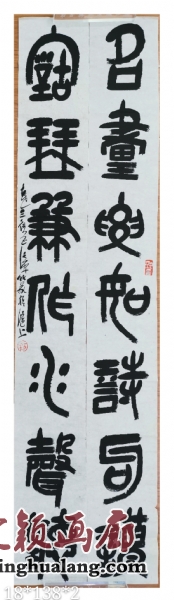 名畫要如詩句讀
古琴兼作水聲聽
颖画廊
inghualang.com
18*138*2